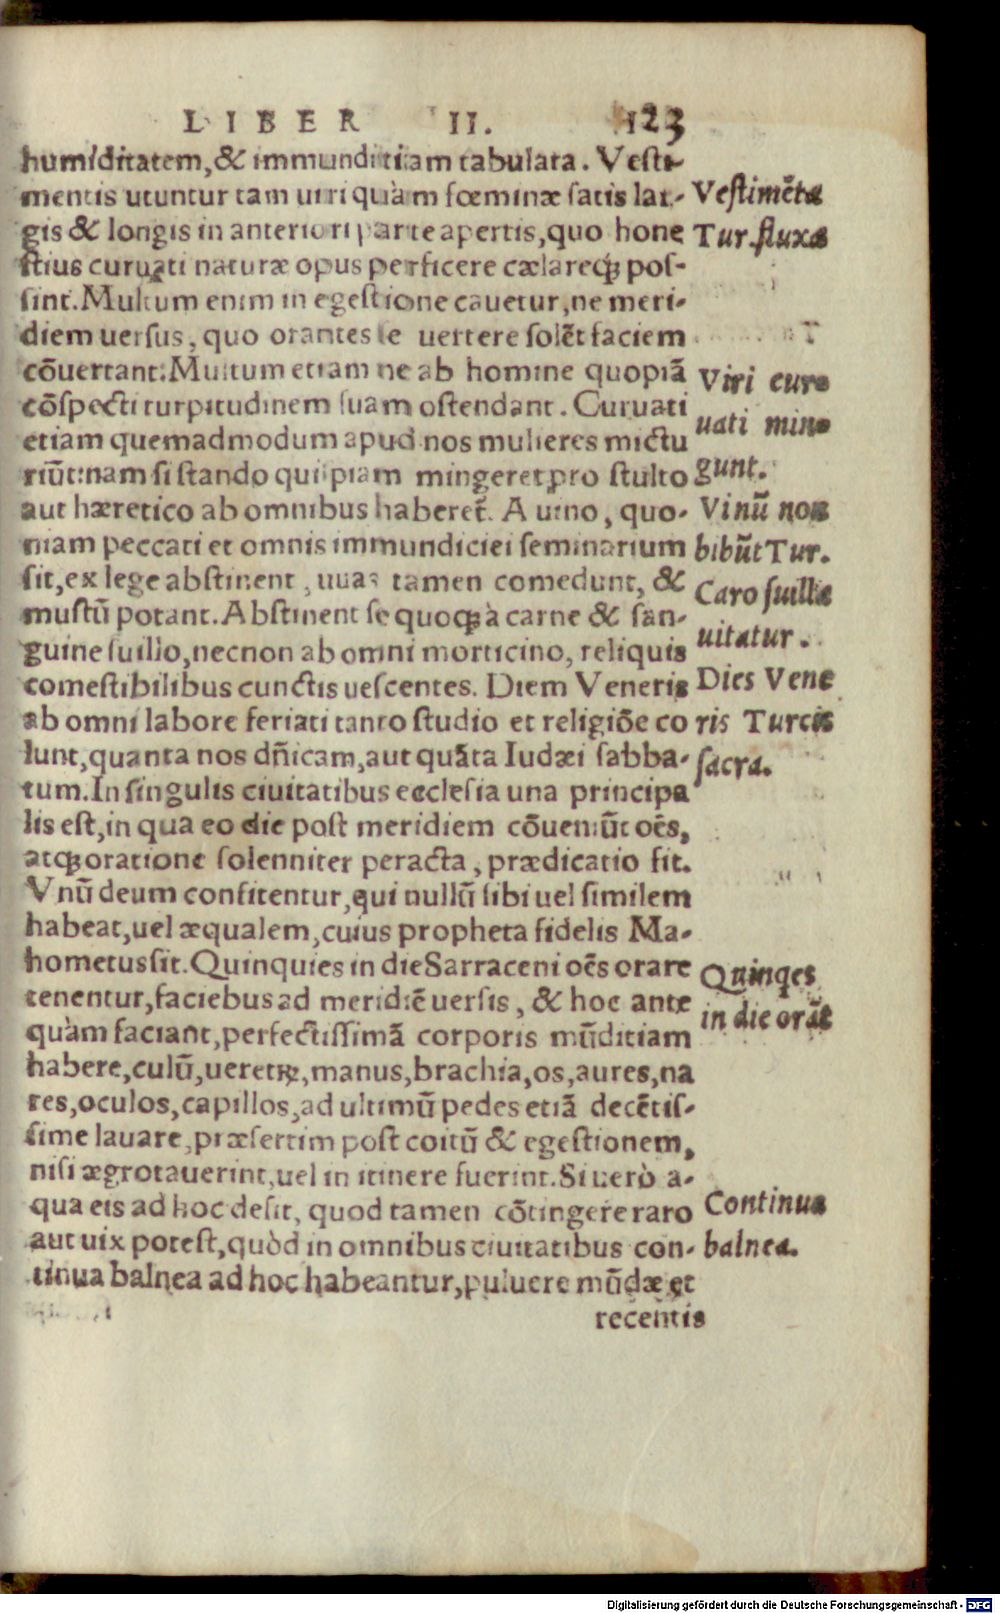 LIBER II. 123
humiditatem,& immunditiam tabulata. Vesti-
mentis utuntur tam uiri quàm fœminæ satis lar-
gis & longis in anteriori parte apertis,quo hone
stius curuati naturæ opus perficere cælareq́; pos-
sint. Multum enim in egestione cauetur,ne meri-
diem uersus, quo orantes se uertere solẽt faciem
cõuertant:Multum etiam ne ab homine quopiã
cõspecti turpitudinem suam ostendant. Curuati
etiam quemadmodum apud nos mulieres mictu
riũt:nam si stando quispiam mingeret,pro stulto
aut hæretico ab omnibus haberet̃. A uino, quo-
niam peccati et omnis immundiciei seminarium
sit,ex lege abstinent, uuas tamen comedunt, &
mustũ potant. Abstinent se quoq; à carne & san-
guine suillo,necnon ab omni morticino, reliquis
comestibilibus cunctis uescentes. Diem Veneris
ab omni labore feriati tanto studio et religiõe co
lunt,quanta nos dñicam,aut quãta Iudæi sabba-
tum. In singulis ciuitatibus ecclesia una principa
lis est,in qua eo die post meridiem cõueniũt oẽs,
atq; oratione solenniter peracta, prædicatio fit.
Vnũ deum confitentur,qui nullũ sibi uel similem
habeat,uel æqualem,cuius propheta fidelis Ma-
hometus sit. Quinquies in die Sarraceni oẽs orare
tenentur,faciebus ad meridiẽ uersis, & hoc ante
quàm faciant,perfectissimã corporis mũditiam
habere,culũ,ueretꝝ,manus,brachia,os,aures,na
res,oculos,capillos,ad ultimũ pedes etiã decẽtis-
sime lauare,præsertim post coitũ & egestionem,
nisi ægrotauerint,uel in itinere fuerint. Si uerò a-
qua eis ad hoc desit, quod tamen cõtingere raro
aut uix potest,quòd in omnibus ciuitatibus con-
tinua balnea ad hoc habeantur,puluere mũdæ et
recentis
Vestimẽta
Tur. fluxa
Viri cur-
uati min-
gunt.
Vinũ non
bibũt Tur.
Caro suilla
uitatur.
Dies Vene
ris Turcis
sacra.
Quinqes
in die orãt
Continua
balnea.
Digitalisierung gefördert durch die Deutsche Forschungsgemeinschaft - DFG